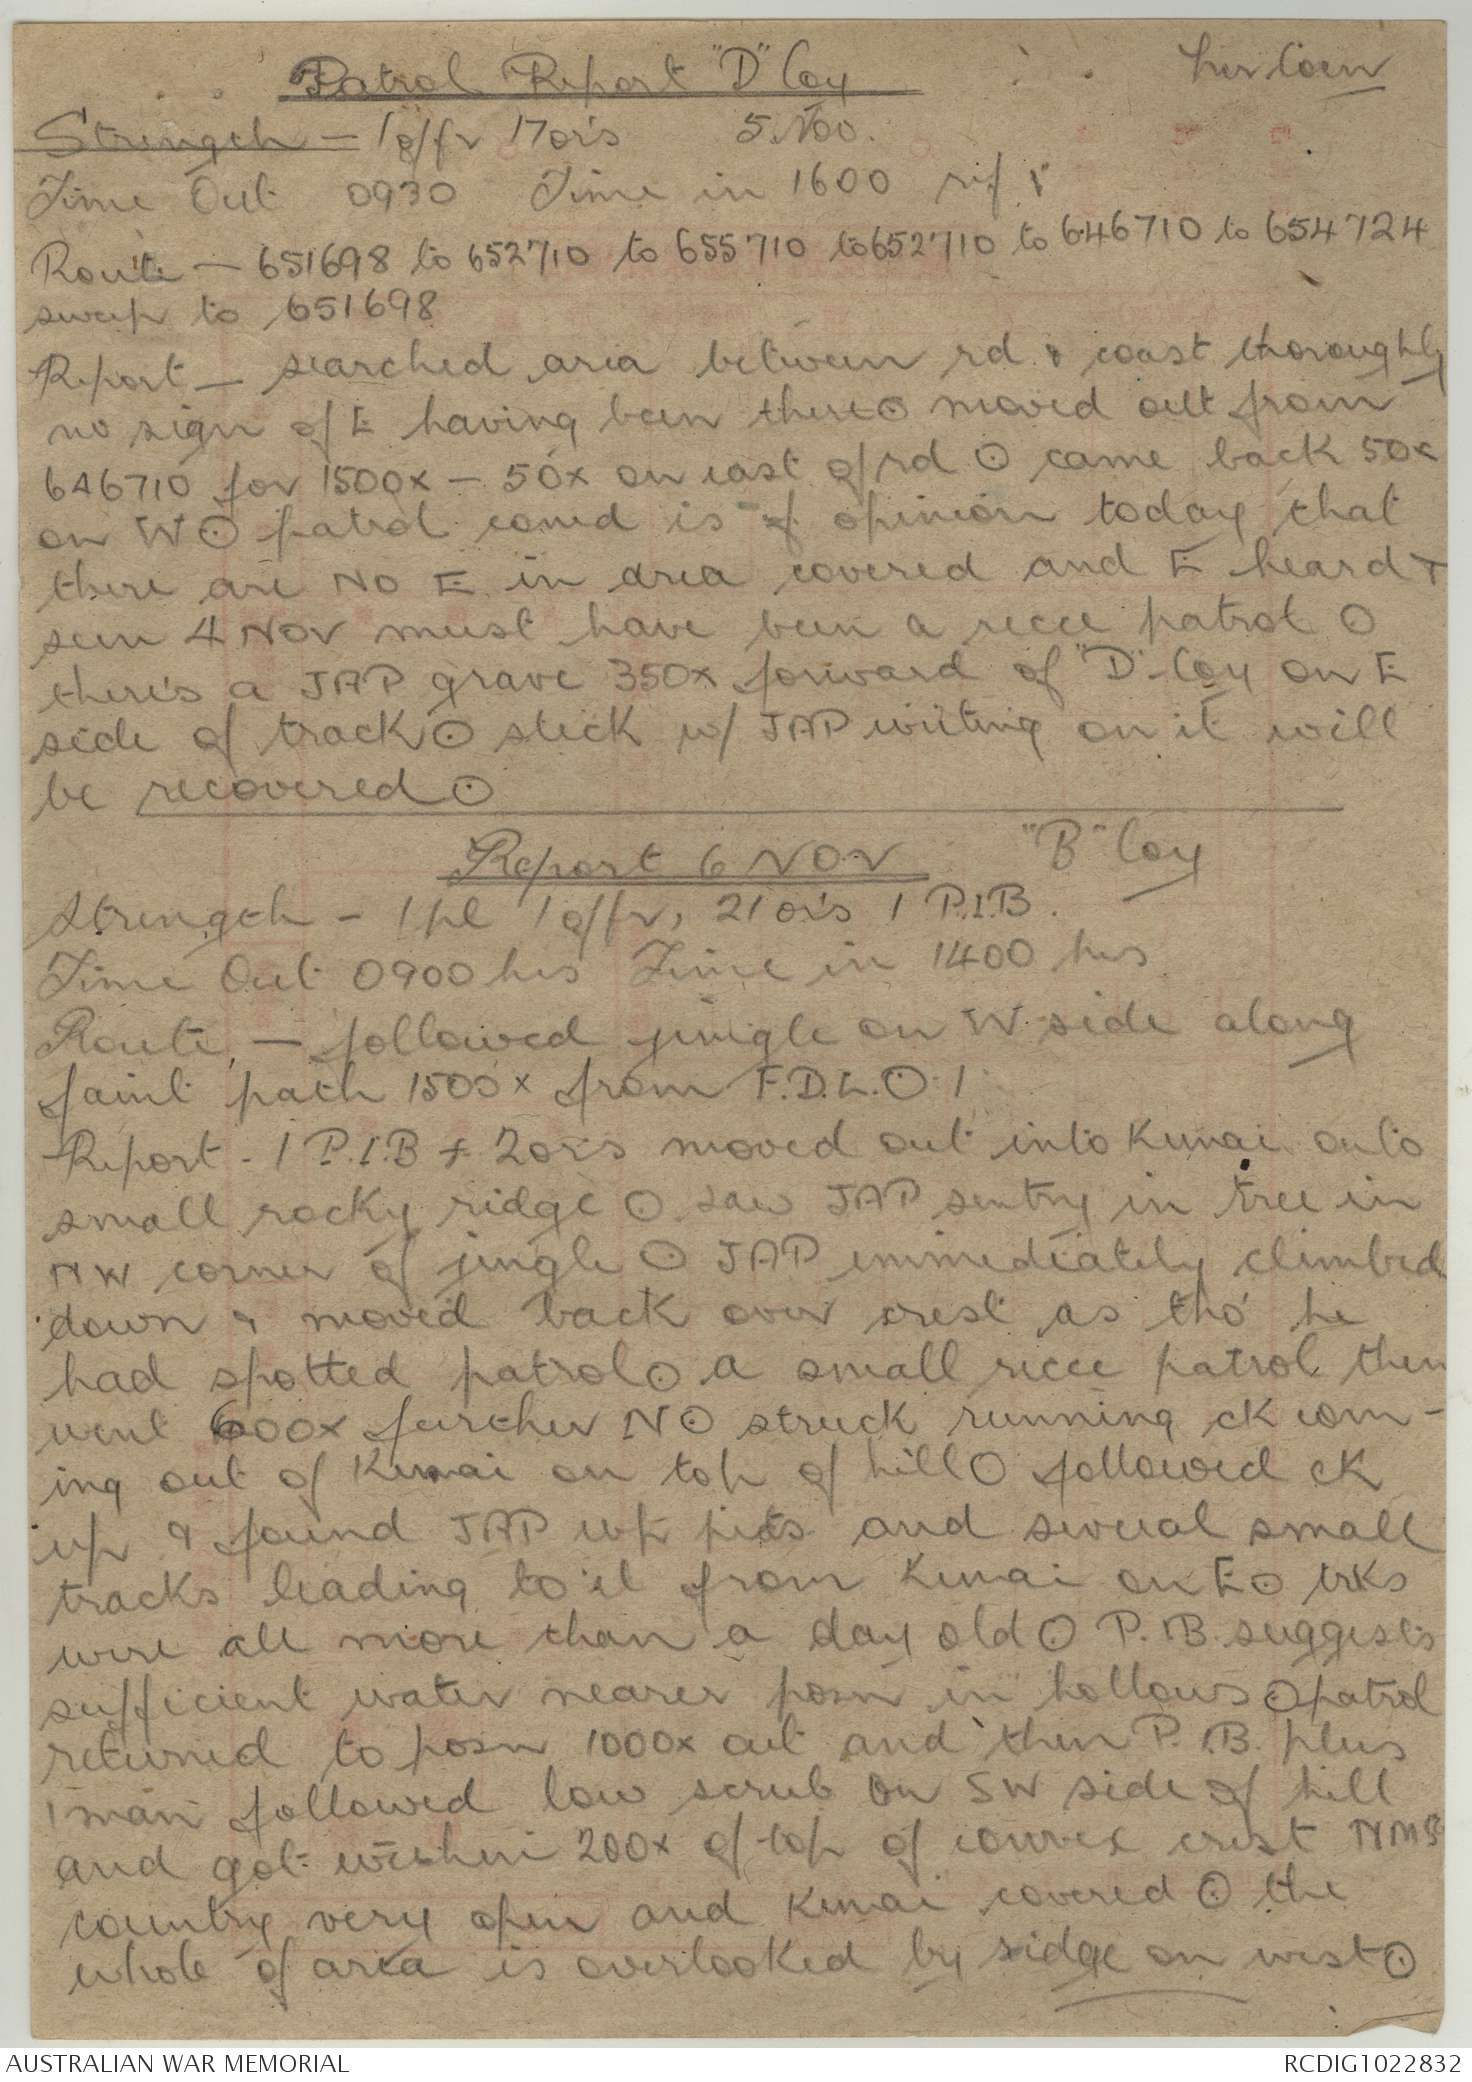 Patrol Report "D" Coy
Strength - 1 offr 17 ors 5 Nov.
Time Out 0930 Time in 1600
Route - 651698 to 652710 to 655710 to 652710 to 646710 to 654724
sweep to 651698
Report - searched area between rd & coast thoroughly
no sign of E having been there ⊙ moved out from
646710 for 1500x - 50x on east of rd ⊙ came back 50x
on W ⊙ patrol comd is of opinion today that
there are NO E in area covered and E heard +
seen 4 NOV must have been a recce patrol ⊙
there's a JAP grave 350x forward of "D" Coy on E
side of track ⊙ stick w/ JAP writing on it will
be recovered ⊙
Report 6 NOV "B" Coy
Strength - 1 pl 1 offr, 21 ors 1 P.I.B.
Time Out 0900 hrs Time in 1400 hrs
Route, - followed jungle on W side along
faint path 1500x from F.D.L. ⊙
Report - 1 P.I.B + 2 ors moved out into Kunai onto
small rocky ridge ⊙ saw JAP sentry in tree in
NW corner of jungle ⊙ JAP immediately climbed
down & moved back over crest as tho' he
had spotted patrol ⊙ a small recce patrol then
went 600x further N ⊙ struck running ck com-
ing out of Kunai on top of hill ⊙ followed ck
up & found JAP wp pits and several small
tracks leading to it from Kunai on E ⊙ trks
were all more than a day old ⊙ P.IB. suggests
sufficient water nearer posn in hollows ⊙ patrol
returned to posn 1000x out and then P.I.B. plus
1 man followed low scrub on SW side of hill
and got within 200x of top of convex crest
country very open and Kunai covered ⊙ the
whole of area is overlooked by ridge on west ⊙
AUSTRALIAN WAR MEMORIAL
RCDIG1022832